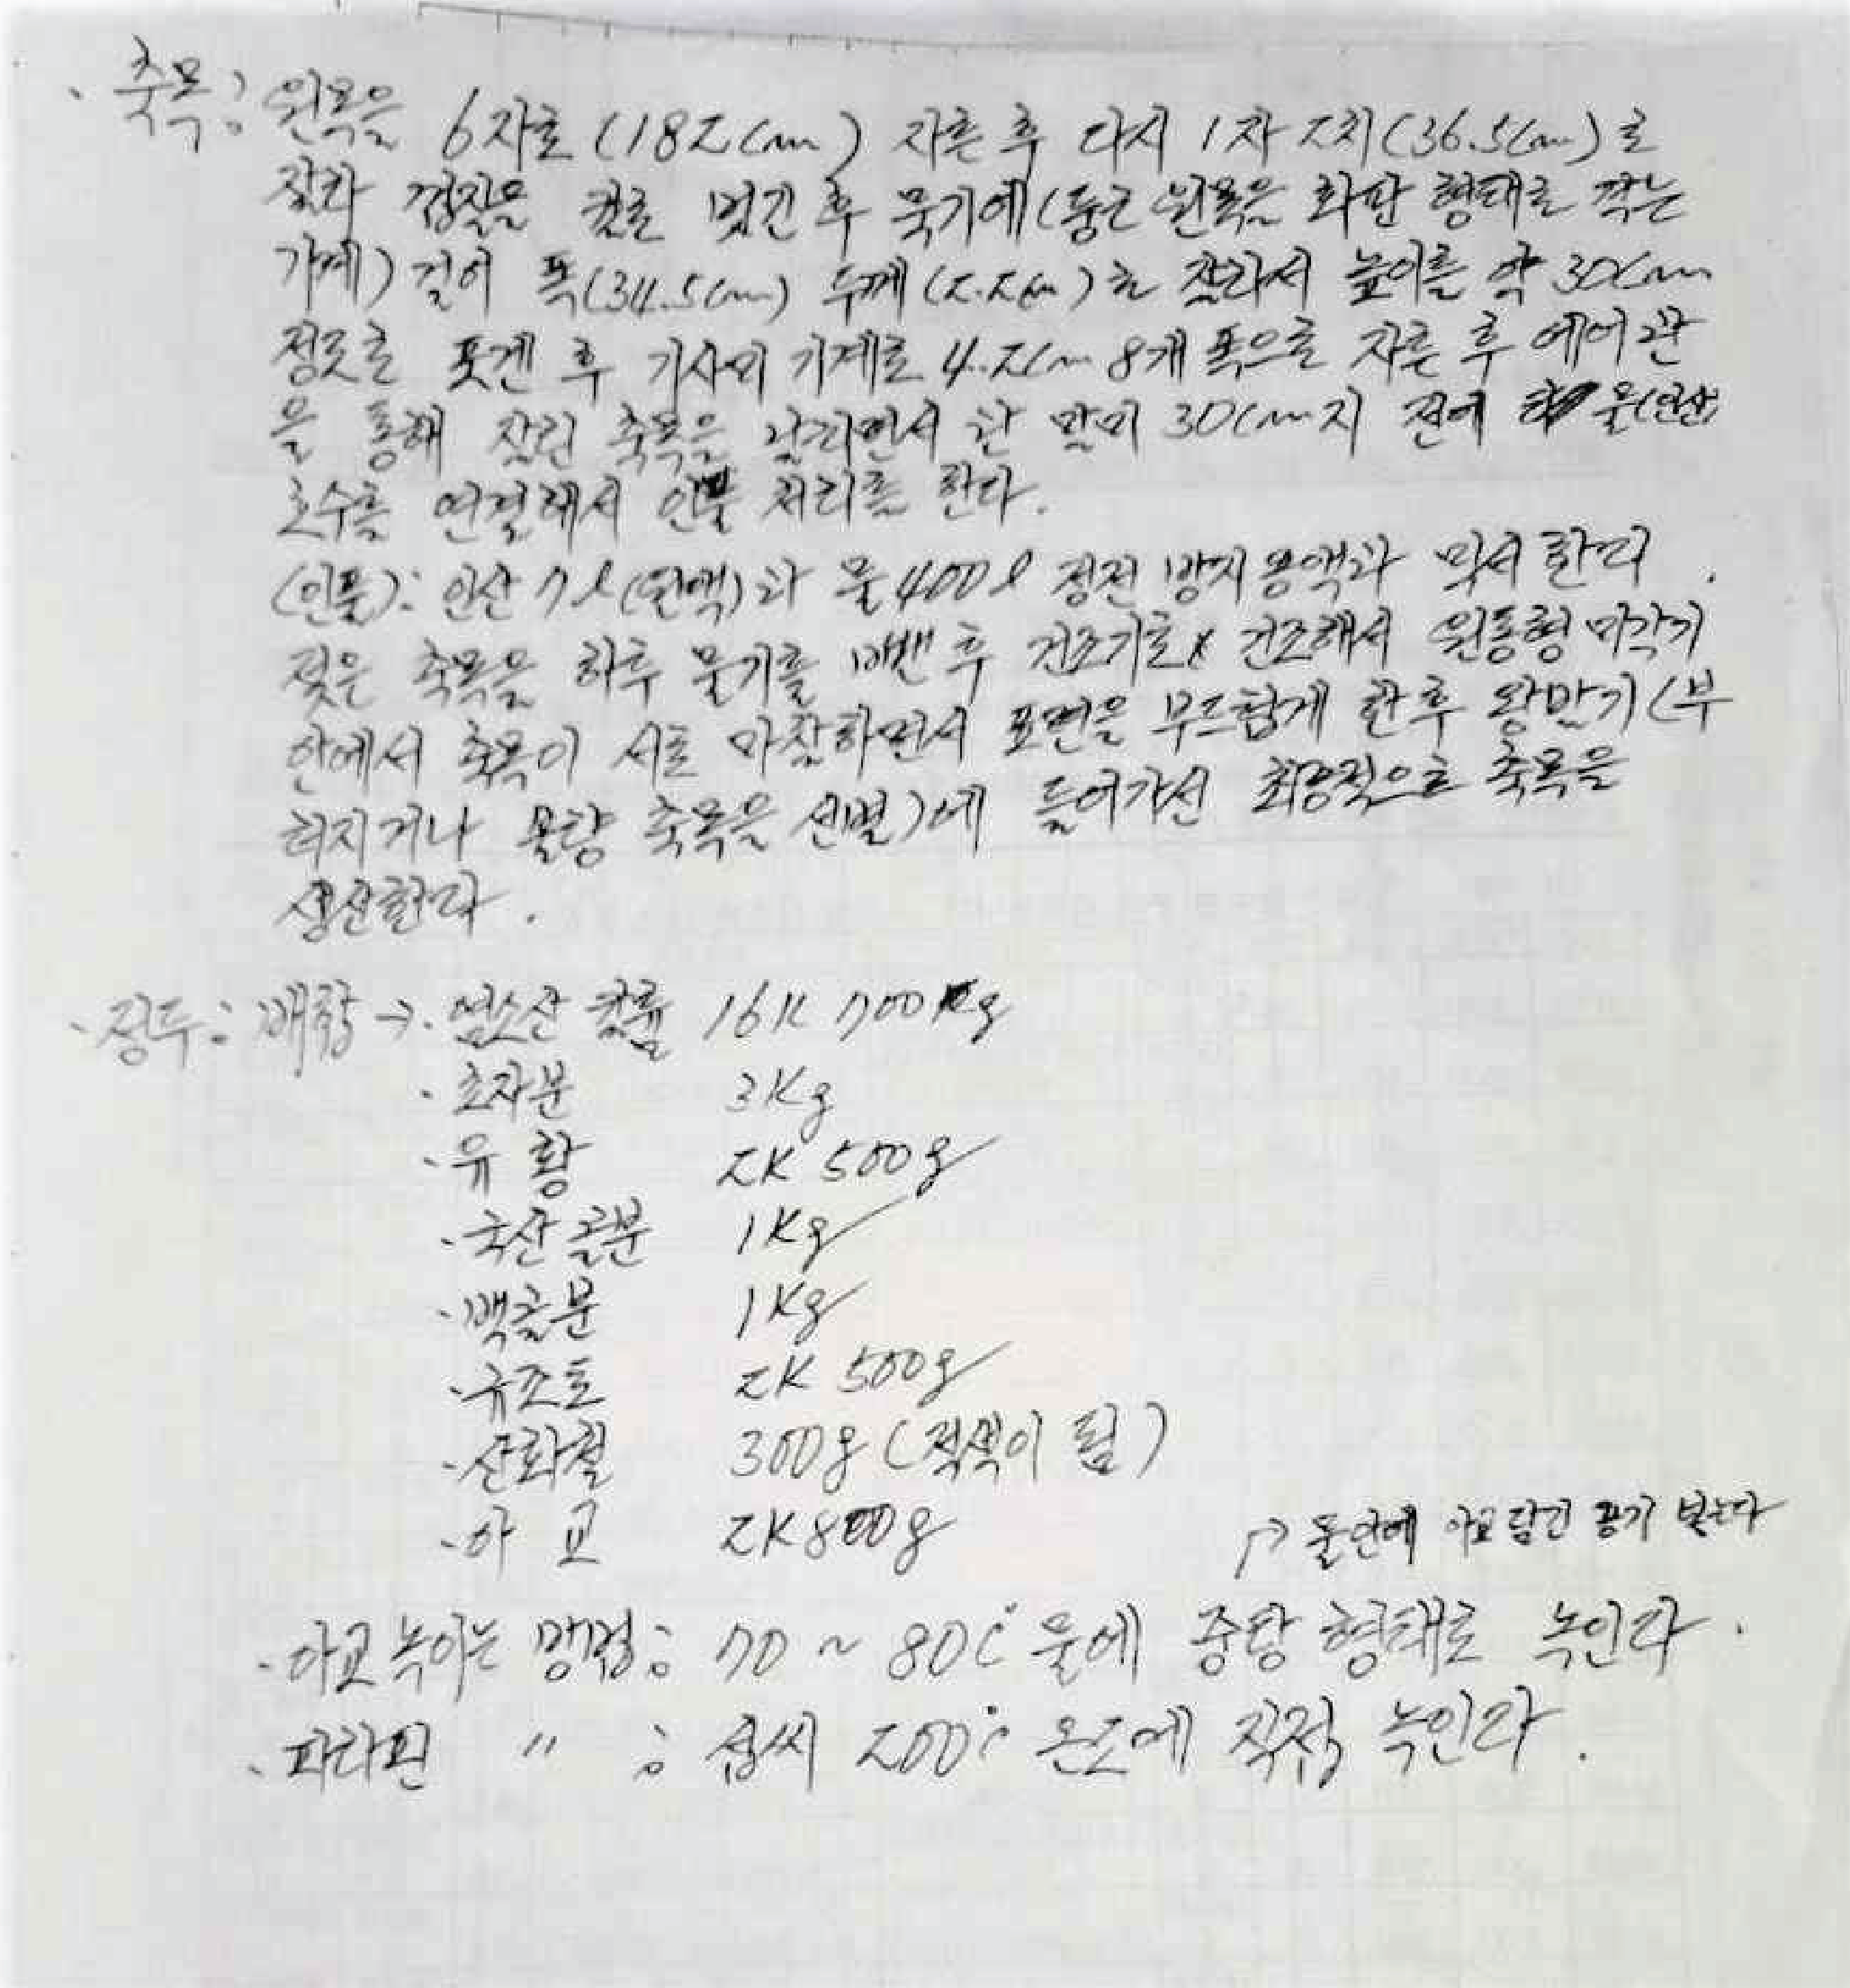 · 축목; 원목을 6자로 (182cm) 자른 후 다시 1자 2치(36.5cm)로
잘라 껍질을 컷로 벗긴 후 묵기에(둥근 원목을 화판 형태로 깍는
기계) 걸어 폭(34.5cm) 두께 (2.2cm)로 잘라서 높이를 약 30cm
정도로 폿겐 후 기사미 기계로 4.2cm 8개 폭으로 자른 후 에어관
을 통해 잘린 축목을 날리면서 관 말미 30cm지 전에 물(인산)
호수를 연결해서 인물 처리를 한다.
(인물): 인산 7ℓ(원액)과 물 400ℓ 정전 방지 용액과 믹서 한다.
젖은 축목을 하루 물기를 빼밴 후 건조기로 건조해서 원통형 마각기
안에서 축목이 서로 마찰하면서 표면을 부드럽게 한 후 왕발기(부
러지거나 불량 축목을 선별)에 들어가선 최종적으로 축목을
생산한다.
· 정두: 배합 → · 염소산 컬륨 16K 700Kg
· 초자분 3Kg
· 유황 2K 500g
· 국산골분 1Kg
· 백골분 1Kg
· 규조토 2K 500g
· 산화철 300g (적색이 됨)
· 아교 2K 800g
→ 물 안에 아교 담긴 공기 넣는다
· 아교 녹이는 방법; 70 ~ 80℃ 물에 중탕 형태로 녹인다.
· 파라핀 〃 ; 섭씨 200℃ 온도에 직접 녹인다.